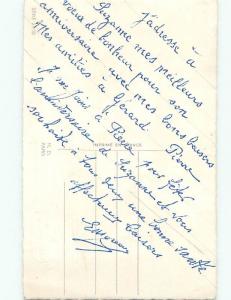 J'adresse à
Suzanne mes meilleurs
vœux de bonheur pour son
anniversaire avec mes bons baisers
Mes amitiés à Gérard
Je me joins à Pierre
pour fêter
l'anniversaire de Suzanne et vous
souhaite à tous deux une bonne santé
Affectueux baisers
IMPRIMÉ EN FRANCE
N. D.
PARIS